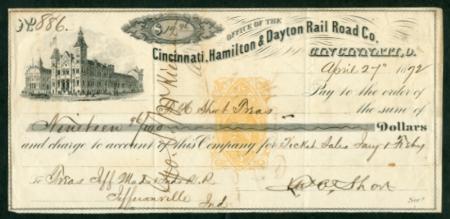 886.
$19.
OFFICE OF THE
Cincinnati, Hamilton & Dayton Rail Road Co.
CINCINNATI, O.
April 27th 1872
Pay to the order
of F H Short Treas the sum of
Nineteen /100 Dollars
and charge to account of this Company for Ticket Sales Jany & Feby
To Treas Jeff R.R.
Jeffersonville Ind.
F H Short